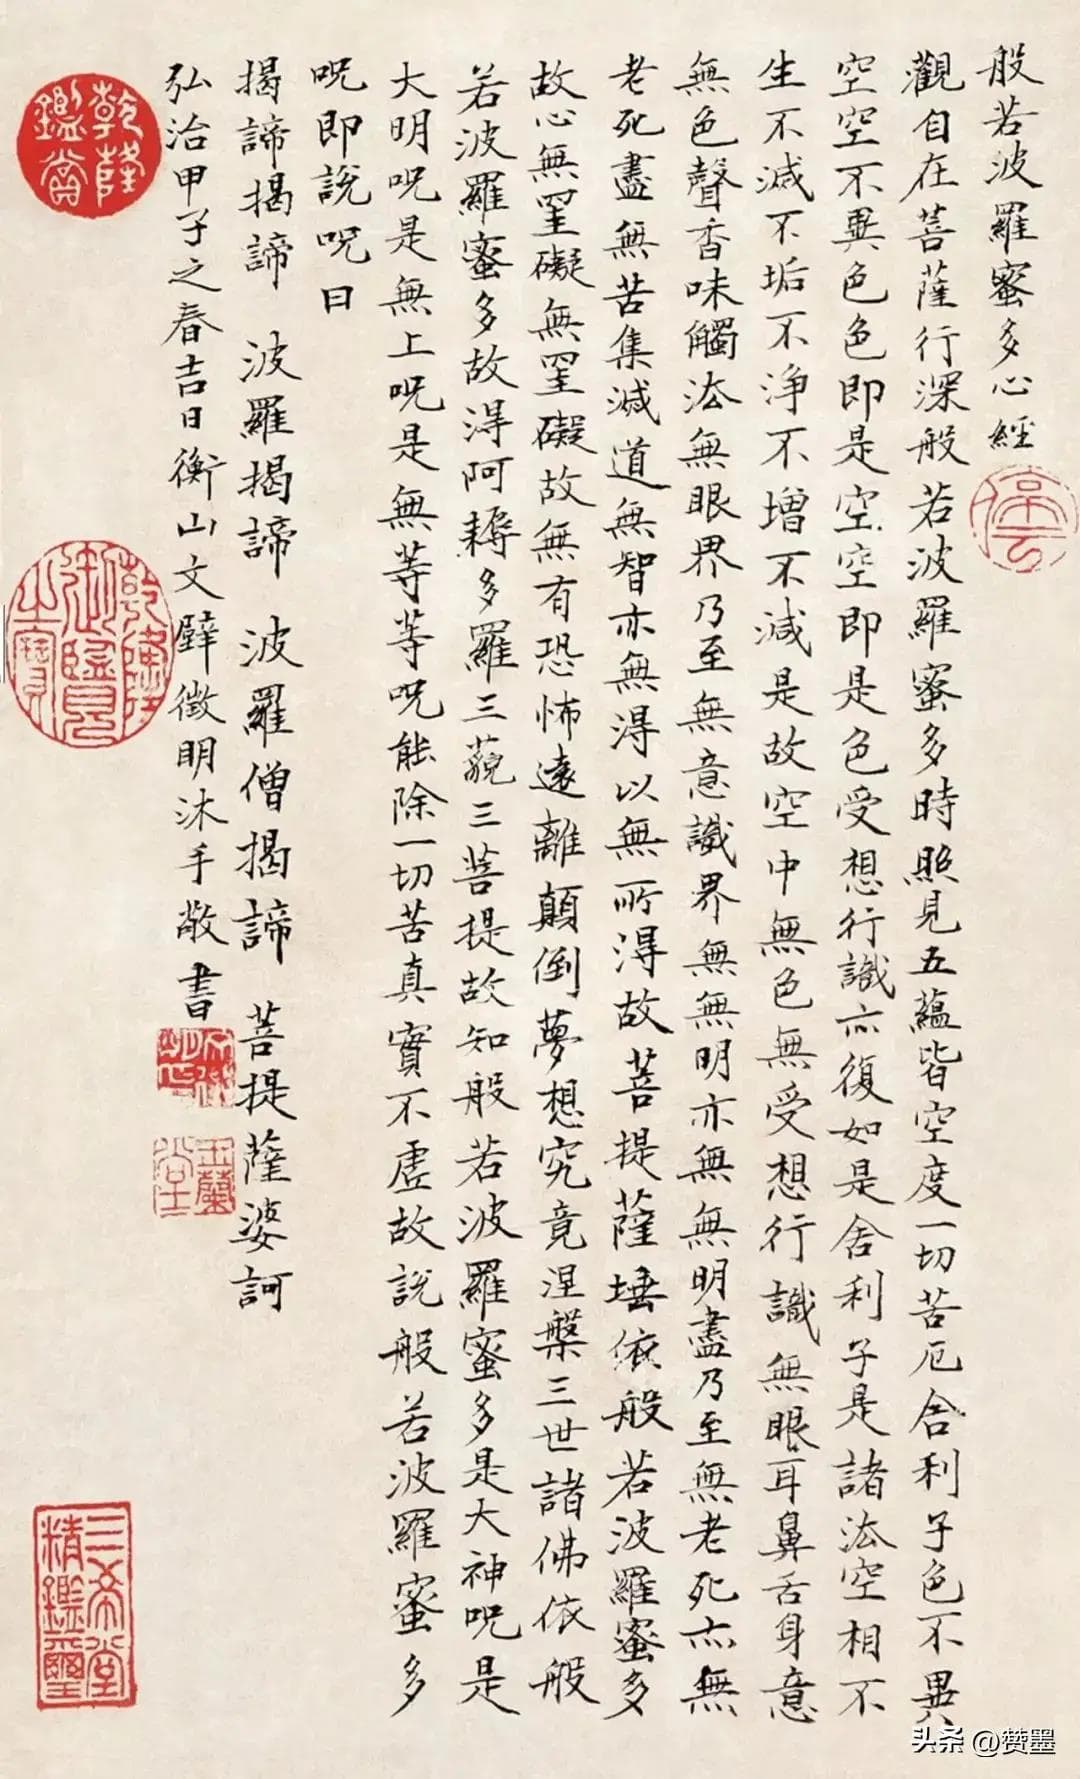 般若波羅蜜多心經
停雲
觀自在菩薩行深般若波羅蜜多時照見五蘊皆空度一切苦厄舍利子色不異
空空不異色色即是空空即是色受想行識亦復如是舍利子是諸法空相不
生不滅不垢不淨不增不減是故空中無色無受想行識無眼耳鼻舌身意
無色聲香味觸法無眼界乃至無意識界無無明亦無無明盡乃至無老死亦無
老死盡無苦集滅道無智亦無得以無所得故菩提薩埵依般若波羅蜜多
故心無罣礙無罣礙故無有恐怖遠離顛倒夢想究竟涅槃三世諸佛依般
若波羅蜜多故得阿耨多羅三藐三菩提故知般若波羅蜜多是大神呪是
大明呪是無上呪是無等等呪能除一切苦真實不虛故說般若波羅蜜多
呪即說呪曰
揭諦揭諦 波羅揭諦 波羅僧揭諦 菩提薩婆訶
弘治甲子之春吉日衡山文壁徵明沐手敬書
文徵明印
玉蘭堂
乾隆鑑賞
乾隆御覽之寶
三希堂精鑑璽
头条 @赞墨